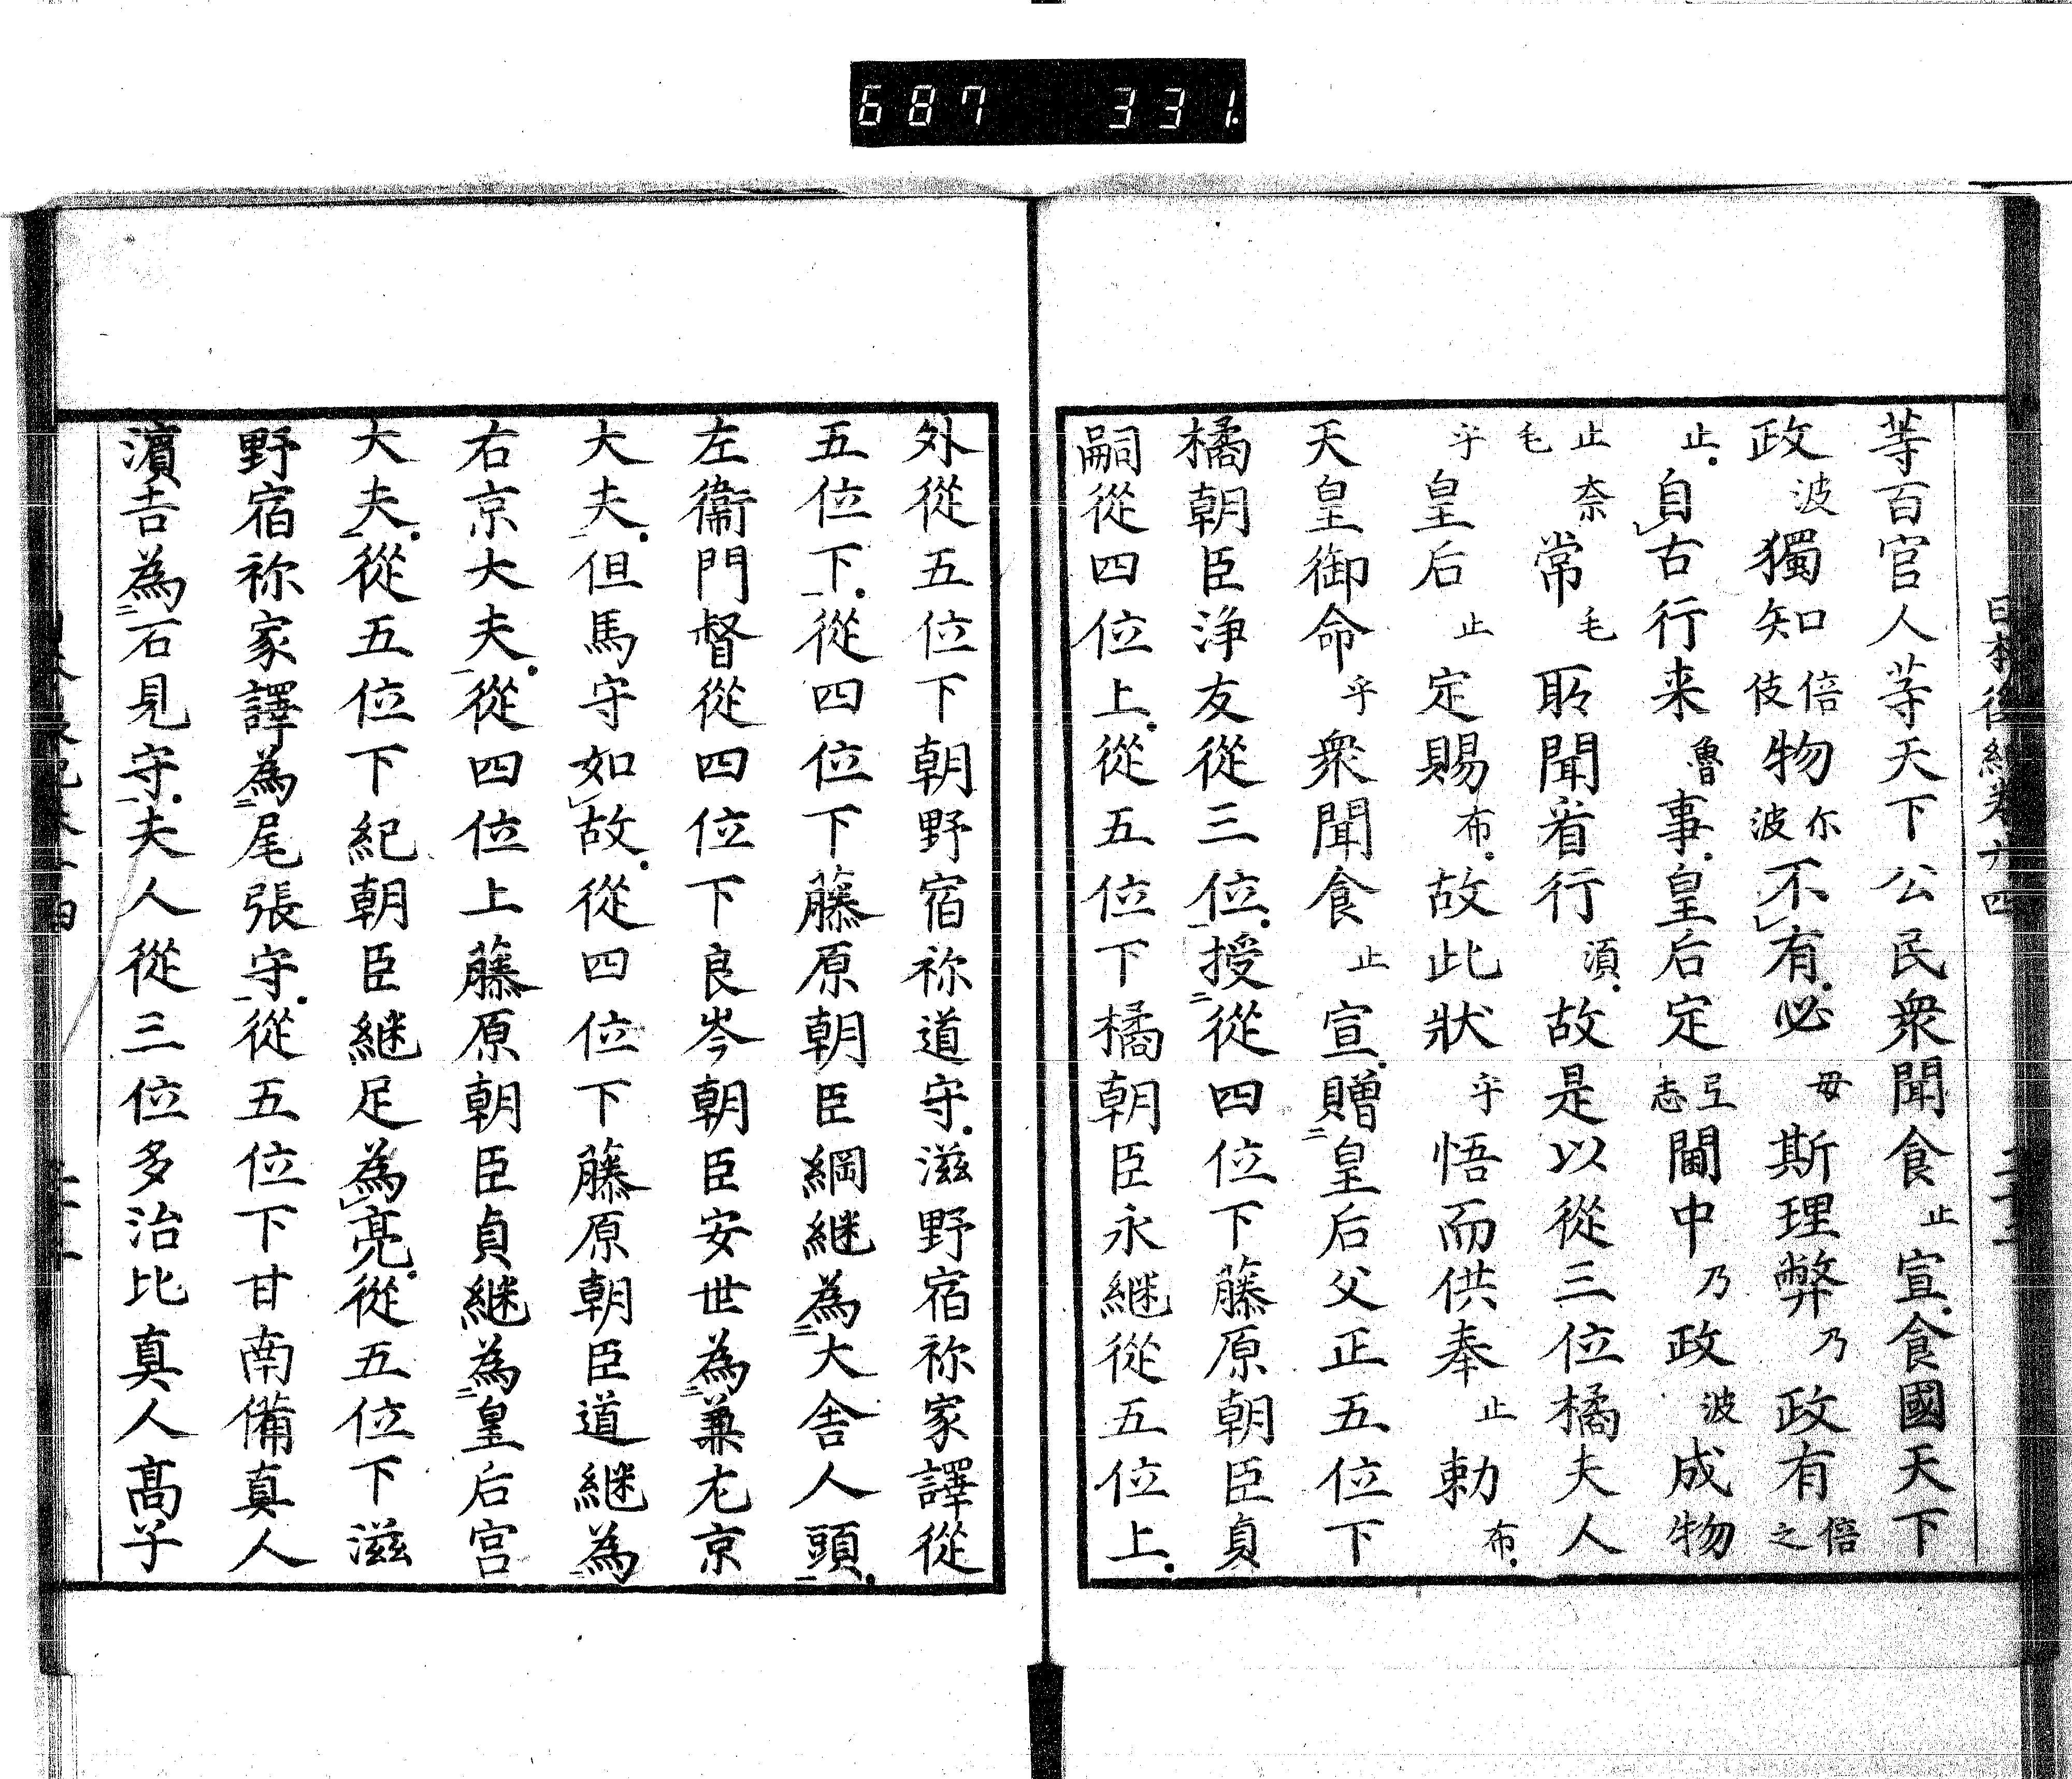 687 331.
日本後紀卷廿四 二十二
等百官人等天下公民衆聞食止宣食國天下
政波獨知倍伎物尓波不有必毋斯理弊乃政有倍之
止自古行来魯事皇后定弖志閫中乃政波成物
止奈毛常毛聞看行湏故是以從三位橘夫人
乎皇后止定賜布故此狀乎悟而供奉止勅布
天皇御命乎衆聞食止宣贈皇后父正五位下
橘朝臣浄友從三位授從四位下藤原朝臣貞
嗣從四位上從五位下橘朝臣永継從五位上
外從五位下朝野宿祢道守滋野宿祢家譯從
五位下從四位下藤原朝臣綱継為大舎人頭
左衞門督從四位下良岑朝臣安世為兼尤京
大夫但馬守如故從四位下藤原朝臣道継為
右京大夫從四位上藤原朝臣貞継為皇后宫
大夫從五位下紀朝臣継足為亮從五位下滋
野宿祢家譯為尾張守從五位下甘南備真人
濵吉為石見守夫人從三位多治比真人髙子